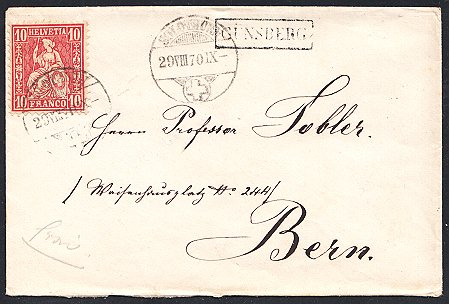 10 HELVETIA 10
10 FRANCO 10
29 VIII 70 IX-
GUNSBERG
Herrn Professor Tobler.
/ Waisenhausplatz No 244 /
Bern.